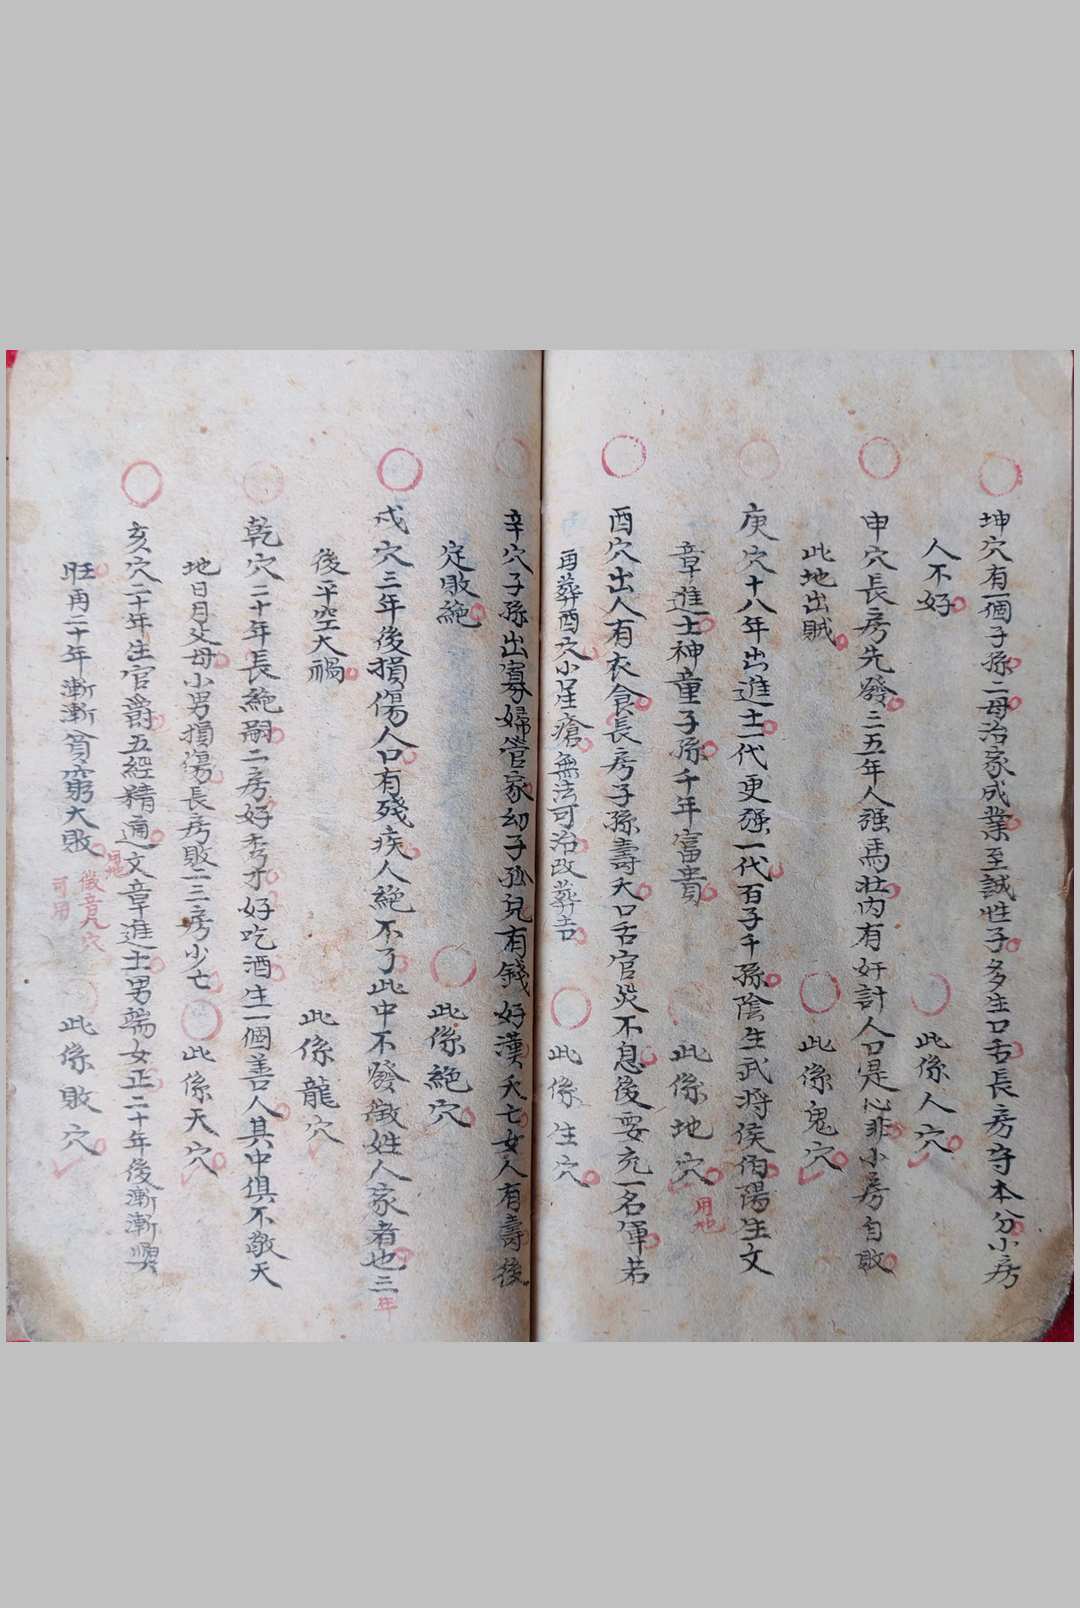 坤穴有一個子孫二母治家成業至誠性子多生口舌長房守本分小房
人不好　此係人穴
申穴長房先發三五年人强馬壯內有奸計人口是心非小房自敗
此地出賊　此係鬼穴
庚穴十八年出進士一代更强一代百子千孫陰生武將侯伯陽生文
章進士神童子孫千年富貴　此係地穴
用地
酉穴出人有衣食長房子孫壽夭口舌官災不息後要充一名軍若
再葬酉穴小星瘡無法可治改葬吉　此係生穴
辛穴子孫出寡婦管家幼子孤兒有錢好漢夭亡女人有壽後
定敗絕　此係絕穴
戍穴三年後損傷人口有殘疾人絕不了此中不發徵姓人家者也三
年
後平空大禍　此係龍穴
乾穴二十年長絕嗣二房好秀才好吃酒生一個善人其中俱不敬天
地日月父母小男損傷長房敗二三房少亡　此係天穴
亥穴二十年生官爵五經精通文章進士男端女正二十年後漸漸興
旺再二十年漸漸貧窮大敗　此係敗穴
用地
徵音人穴
可用